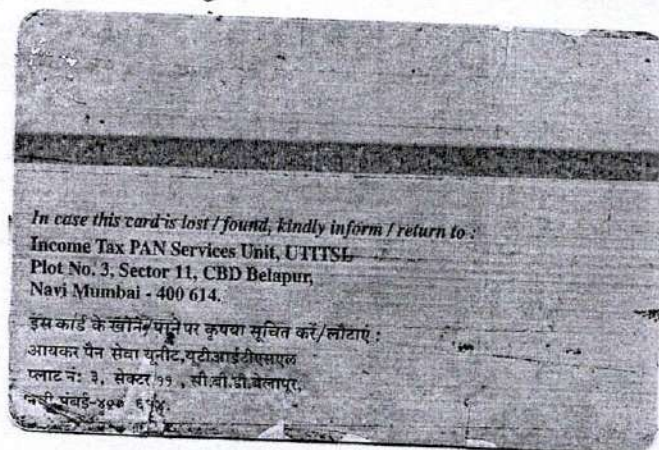 In case this card is lost / found, kindly inform / return to :
Income Tax PAN Services Unit, UTITSL
Plot No. 3, Sector 11, CBD Belapur,
Navi Mumbai - 400 614.
इस कार्ड के खोने/पाने पर कृपया सूचित करें/लौटाएं :
आयकर पैन सेवा यूनीट, यूटीआईटीएसएल
प्लाट नं: ३, सेक्टर ११ , सी.बी.डी.बेलापूर,
नवी मुंबई-४०० ६१४.